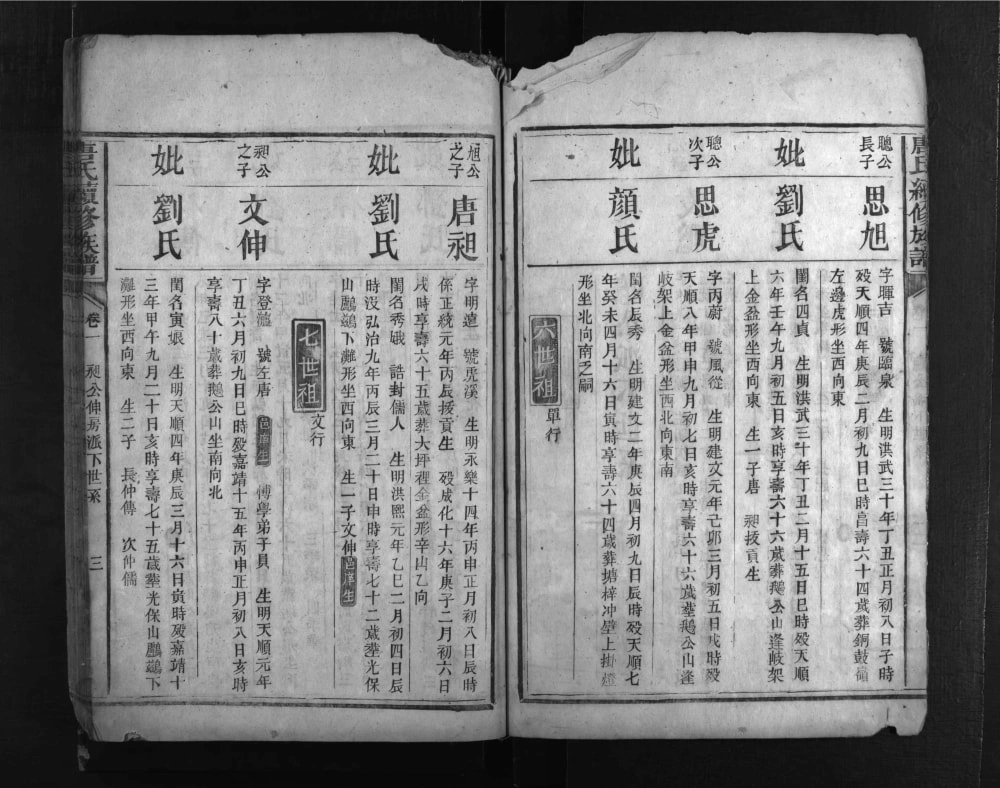 唐氏續修族譜
聰公長子
思旭
字暉吉 號臨泉 生明洪武三十年丁丑正月初八日子時
歿天順四年庚辰二月初九日巳時享壽六十四歲葬銅鼓嶺
左邊虎形坐西向東
妣
劉氏
閨名四貞 生明洪武三十年丁丑二月十五日巳時歿天順
六年壬午九月初五日亥時享壽六十六歲葬鵝公山逢岐架
上金盆形坐西向東 生一子唐 昶拔貢生
聰公次子
思虎
字丙蔚 號風從 生明建文元年己卯三月初五日戌時歿
天順八年甲申九月初七日亥時享壽六十六歲塟鵝公山逢
岐架上金盆形坐西北向東南
妣
顏氏
閨名辰秀 生明建文二年庚辰四月初九日辰時歿天順七
年癸未四月十六日寅時享壽六十四歲葬塘梓冲壁上掛燈
形坐北向南乏嗣
六世祖
單行
旭公之子
唐昶
字明遠 號虎溪 生明永樂十四年丙申正月初八日辰時
係正統元年丙辰拔貢生 歿成化十六年庚子二月初六日
戌時享壽六十五歲葬大坪裡金盆形辛山乙向
妣
劉氏
閨名秀娥 誥封儒人 生明洪熙元年乙巳二月初四日辰
時沒弘治九年丙辰三月二十日申時享壽七十二歲塟光保
山鸕鷀下灘形坐西向東 生一子文伸邑庠生
七世祖
文行
昶公之子
文伸
字登瀛 號左唐 邑庠生 博學弟子員 生明天順元年
丁丑六月初九日巳時歿嘉靖十五年丙申正月初八日亥時
享壽八十歲葬鵝公山坐南向北
妣
劉氏
閨名寅娘 生明天順四年庚辰三月十六日寅時歿嘉靖十
三年甲午九月二十日亥時享壽七十五歲塟光保山鸕鷀下
灘形坐西向東 生二子 長仲傳 次仲儒
唐氏續修族譜
卷一
昶公伸房派下世系
三